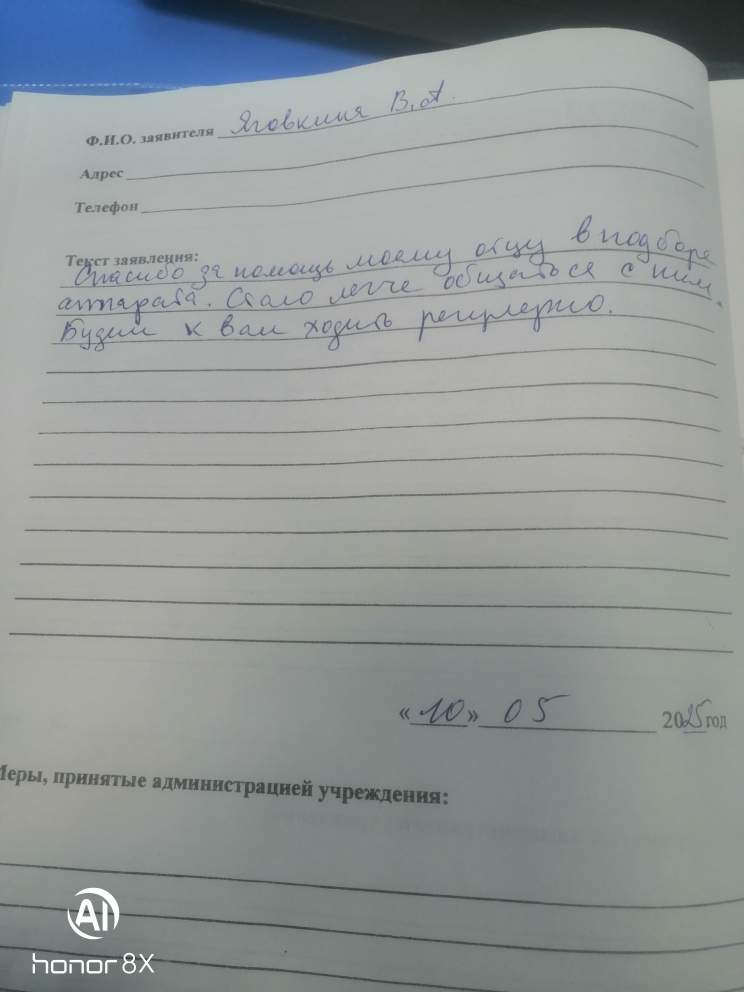 Ф.И.О. заявителя Яговкина В.А.
Адрес
Телефон
Текст заявления:
Спасибо за помощь моему отцу в подборе
аппарата. Стало легче общаться с ним.
Будем к вам ходить регулярно.
«10» 05 2025 год
Меры, принятые администрацией учреждения:
AI
honor 8X